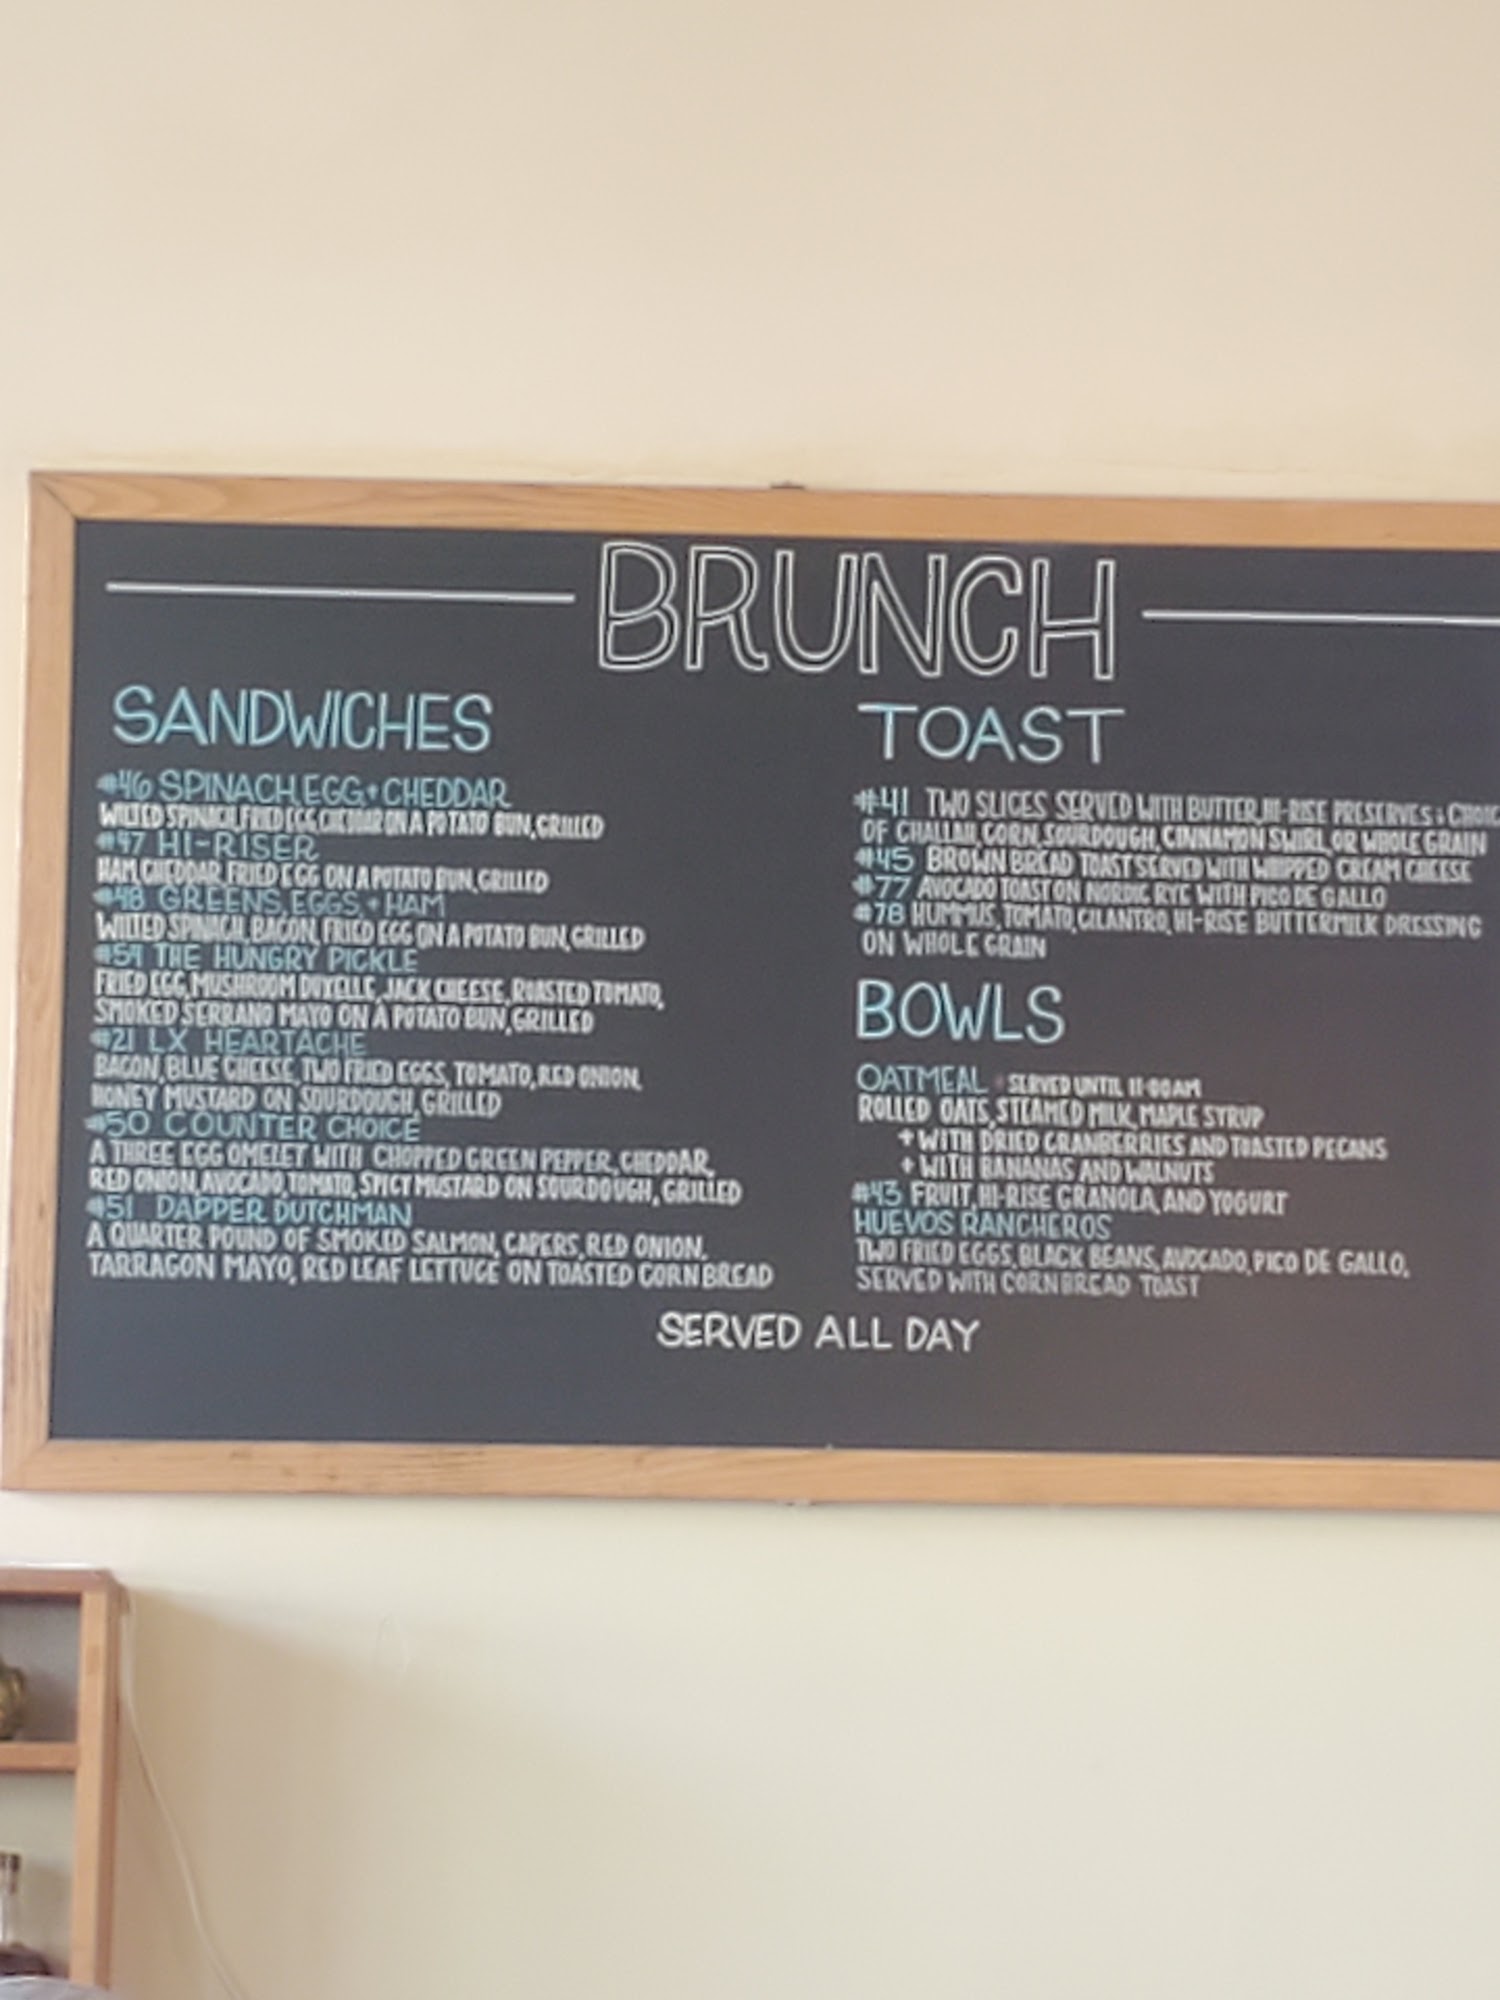 BRUNCH
SANDWICHES
#46 SPINACH, EGG + CHEDDAR
WILTED SPINACH, FRIED EGG, CHEDDAR ON A POTATO BUN, GRILLED
#47 HI-RISER
HAM, CHEDDAR, FRIED EGG ON A POTATO BUN, GRILLED
#48 GREENS, EGGS, + HAM
WILTED SPINACH, BACON, FRIED EGG ON A POTATO BUN, GRILLED
#59 THE HUNGRY PICKLE
FRIED EGG, MUSHROOM DUXELLE, JACK CHEESE, ROASTED TOMATO,
SMOKED SERRANO MAYO ON A POTATO BUN, GRILLED
#21 LX HEARTACHE
BACON, BLUE CHEESE, TWO FRIED EGGS, TOMATO, RED ONION,
HONEY MUSTARD ON SOURDOUGH, GRILLED
#50 COUNTER CHOICE
A THREE EGG OMELET WITH CHOPPED GREEN PEPPER, CHEDDAR,
RED ONION, AVOCADO, TOMATO, SPICY MUSTARD ON SOURDOUGH, GRILLED
#51 DAPPER DUTCHMAN
A QUARTER POUND OF SMOKED SALMON, CAPERS, RED ONION,
TARRAGON MAYO, RED LEAF LETTUCE ON TOASTED CORN BREAD
TOAST
#41 TWO SLICES SERVED WITH BUTTER, HI-RISE PRESERVES & CHOIC
OF CHALLAH, CORN, SOURDOUGH, CINNAMON SWIRL, OR WHOLE GRAIN
#45 BROWN BREAD TOAST SERVED WITH WHIPPED CREAM CHEESE
#77 AVOCADO TOAST ON NORDIC RYE WITH PICO DE GALLO
#78 HUMMUS, TOMATO, CILANTRO, HI-RISE BUTTERMILK DRESSING
ON WHOLE GRAIN
BOWLS
OATMEAL * SERVED UNTIL 11:00AM
ROLLED OATS, STEAMED MILK, MAPLE SYRUP
+ WITH DRIED CRANBERRIES AND TOASTED PECANS
+ WITH BANANAS AND WALNUTS
#43 FRUIT, HI-RISE GRANOLA, AND YOGURT
HUEVOS RANCHEROS
TWO FRIED EGGS, BLACK BEANS, AVOCADO, PICO DE GALLO,
SERVED WITH CORN BREAD TOAST
SERVED ALL DAY